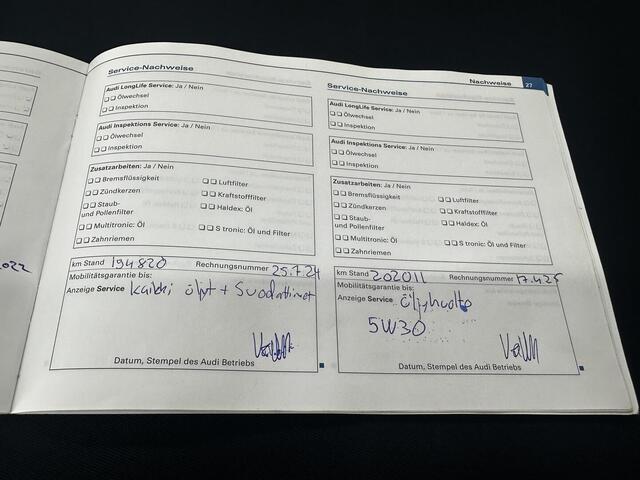 Nachweise 27
Service-Nachweise
Audi LongLife Service: Ja / Nein
Ölwechsel
Inspektion
Audi Inspektions Service: Ja / Nein
Ölwechsel
Inspektion
Zusatzarbeiten: Ja / Nein
Bremsflüssigkeit
Luftfilter
Zündkerzen
Kraftstofffilter
Staub-
und Pollenfilter
Haldex: Öl
Multitronic: Öl
S tronic: Öl und Filter
Zahnriemen
km Stand 194820 Rechnungsnummer 25.7.24
Mobilitätsgarantie bis:
Anzeige Service kaikki öljyt + Suodattimet
Datum, Stempel des Audi Betriebs
Service-Nachweise
Audi LongLife Service: Ja / Nein
Ölwechsel
Inspektion
Audi Inspektions Service: Ja / Nein
Ölwechsel
Inspektion
Zusatzarbeiten: Ja / Nein
Bremsflüssigkeit
Luftfilter
Zündkerzen
Kraftstofffilter
Staub-
und Pollenfilter
Haldex: Öl
Multitronic: Öl
S tronic: Öl und Filter
Zahnriemen
km Stand 202011 Rechnungsnummer 17.4.25
Mobilitätsgarantie bis:
Anzeige Service Öljyhuolto
5W30
Datum, Stempel des Audi Betriebs
2022